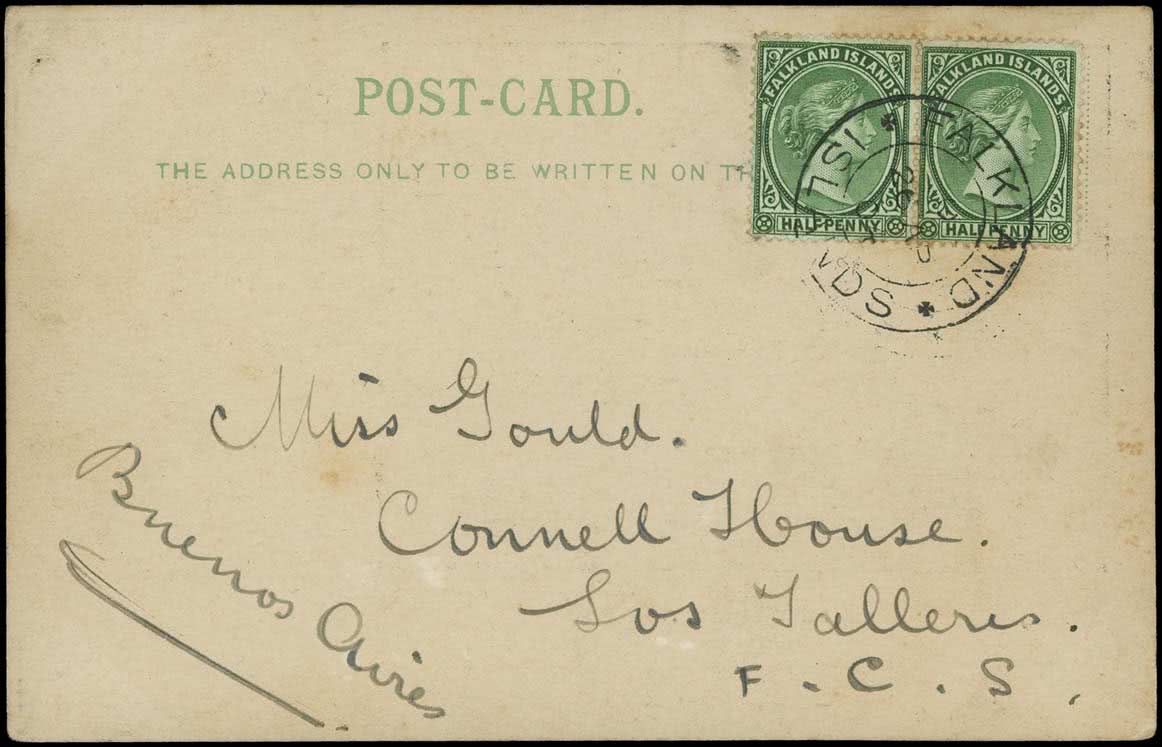 POST-CARD.
THE ADDRESS ONLY TO BE WRITTEN ON TH
FALKLAND ISLANDS
HALFPENNY
FALKLAND ISLANDS
HALFPENNY
FALKLAND ISLANDS
Miss Gould.
Connell House.
Los Talleres.
F.C.S,
Buenos Aires